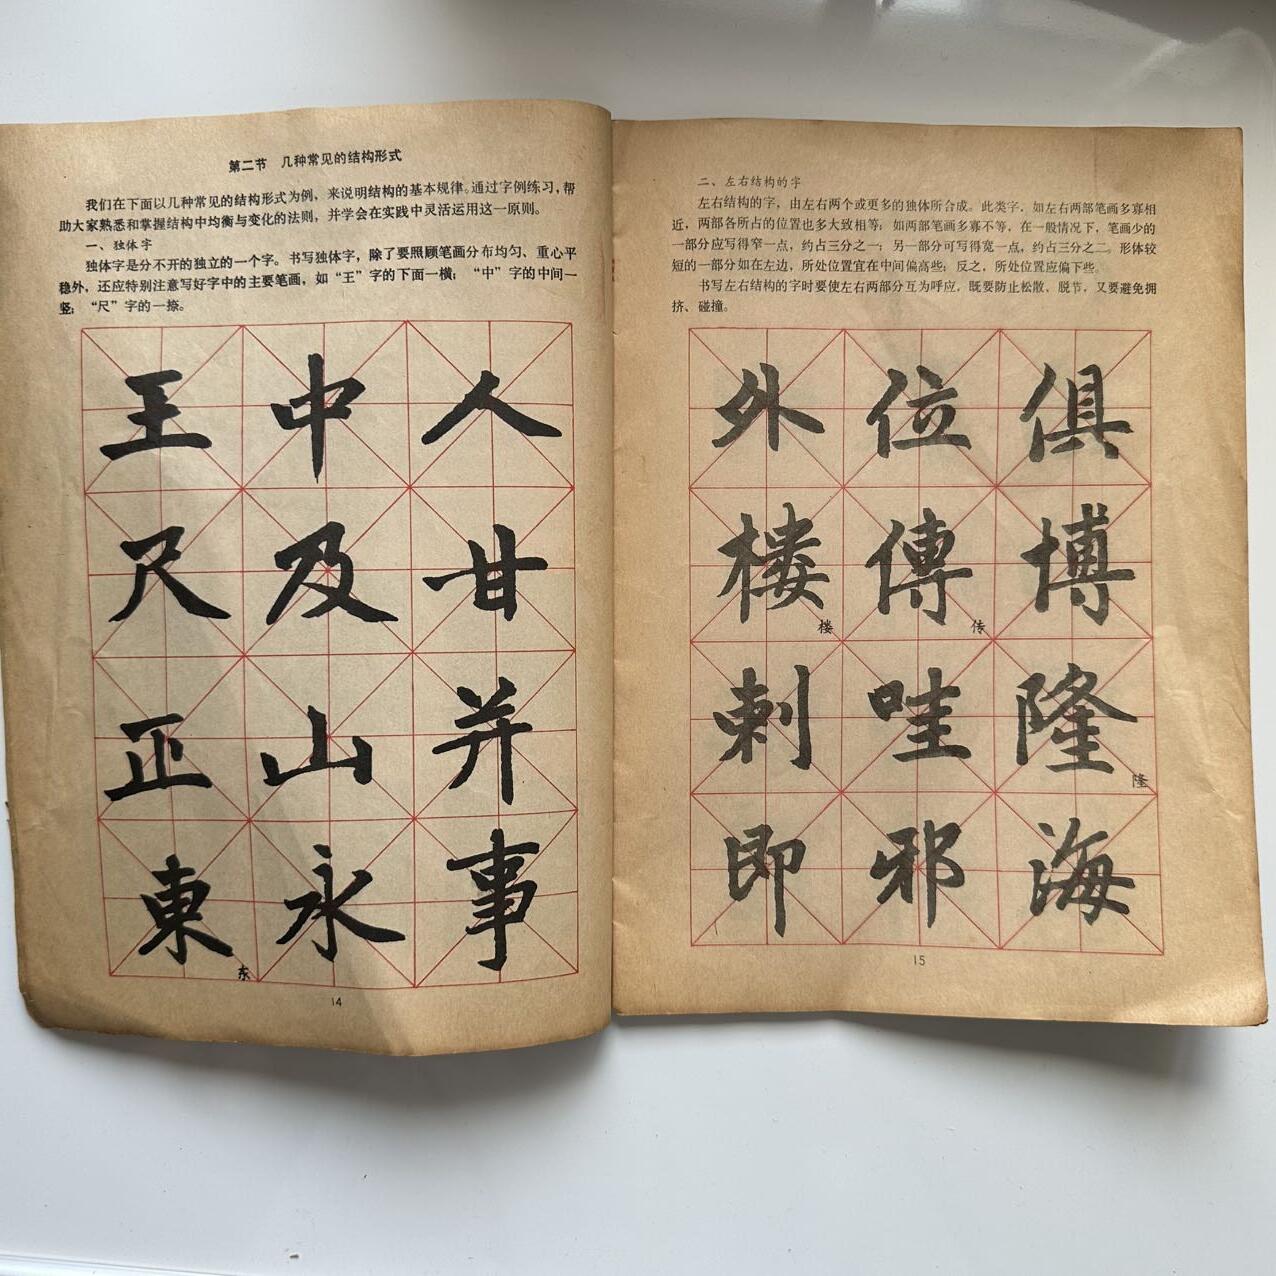 第二节 几种常见的结构形式
我们在下面以几种常见的结构形式为例，来说明结构的基本规律。通过字例练习，帮
助大家熟悉和掌握结构中均衡与变化的法则，并学会在实践中灵活运用这一原则。
一、独体字
独体字是分不开的独立的一个字。书写独体字，除了要照顾笔画分布均匀、重心平
稳外，还应特别注意写好字中的主要笔画，如“王”字的下面一横；“中”字的中间一
竖；“尺”字的一捺。
王中人
尺及甘
正山并
東永事
东
14
二、左右结构的字
左右结构的字，由左右两个或更多的独体所合成。此类字，如左右两部笔画多寡相
近，两部各所占的位置也多大致相等；如两部笔画多寡不等，在一般情况下，笔画少的
一部分应写得窄一点，约占三分之一；另一部分可写得宽一点，约占三分之二。形体较
短的一部分如在左边，所处位置宜在中间偏高些；反之，所处位置应偏下些。
书写左右结构的字时要使左右两部分互为呼应，既要防止松散、脱节，又要避免拥
挤、碰撞。
外位俱
楼傳博
楼 传
刺哇隆
隆
即邪海
15